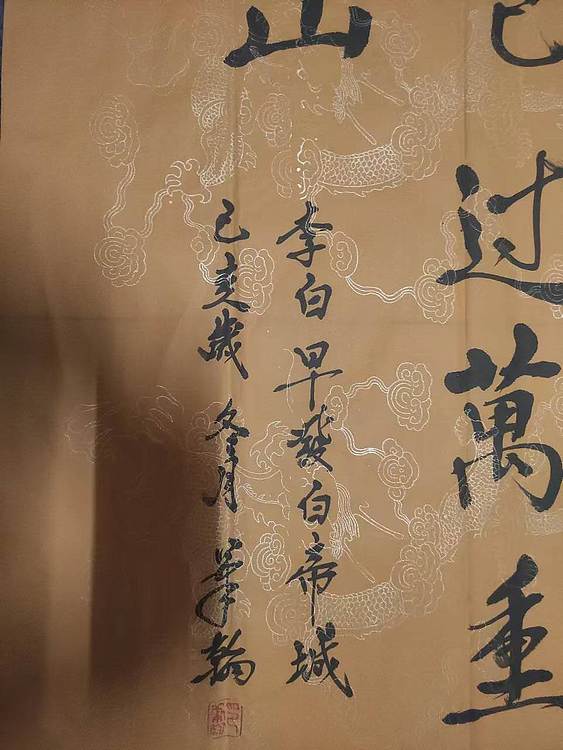 已过萬重
山
李白早發白帝城
己亥歲冬月